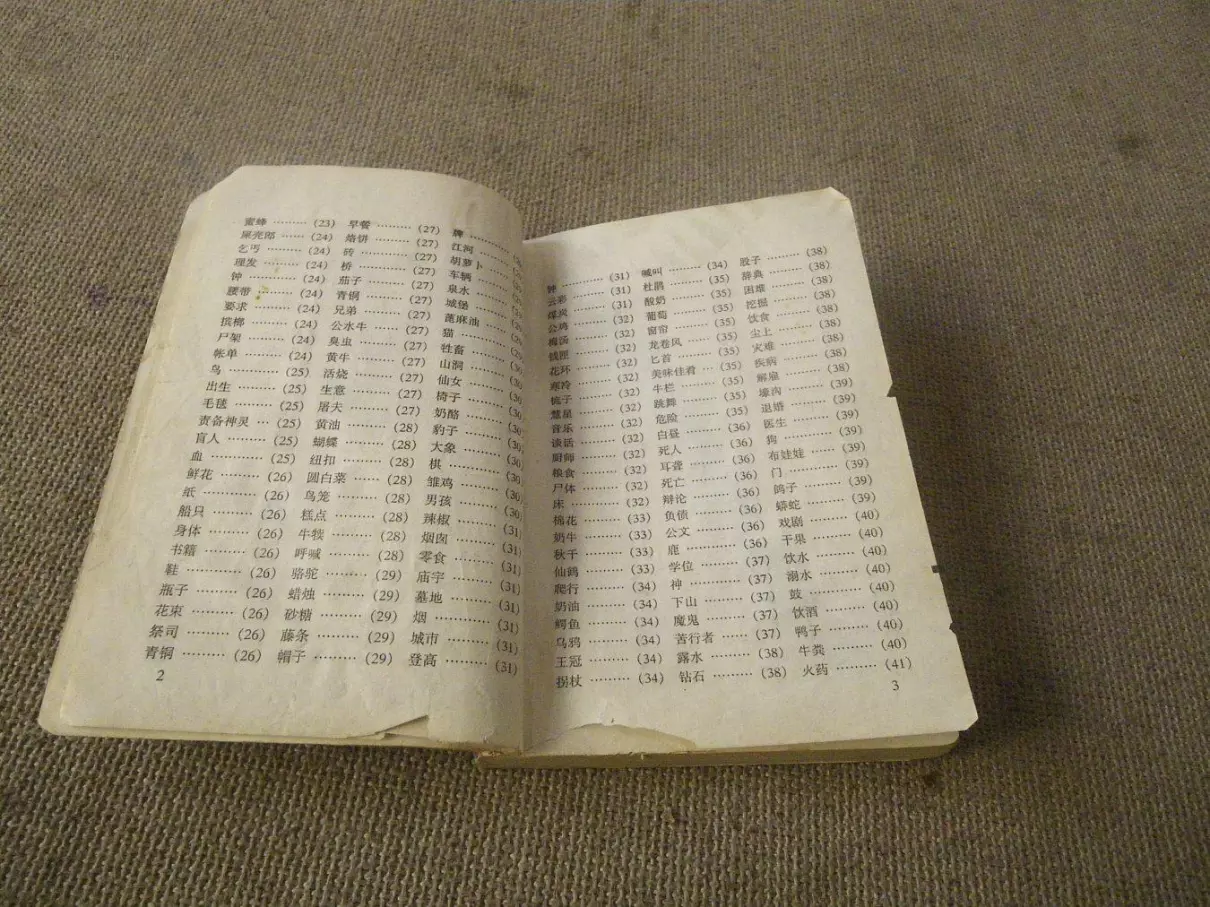 蜜蜂 ……… (23) 早餐 ……… (27) 牌 ………
屎壳郎 …… (24) 烙饼 ……… (27) 江河 ………
乞丐 ……… (24) 砖 ………… (27) 胡萝卜 ……
理发 ……… (24) 桥 ………… (27) 车辆 ………
钟 ………… (24) 茄子 ……… (27) 泉水 ………
腰带 ……… (24) 青铜 ……… (27) 城堡 ………
要求 ……… (24) 兄弟 ……… (27) 蓖麻油 ……
槟榔 ……… (24) 公水牛 …… (27) 猫 …………
尸架 ……… (24) 臭虫 ……… (27) 牲畜 ………
帐单 ……… (24) 黄牛 ……… (27) 山洞 ……… (30)
鸟 ………… (25) 活烧 ……… (27) 仙女 ……… (30)
出生 ……… (25) 生意 ……… (27) 椅子 ……… (30)
毛毯 ……… (25) 屠夫 ……… (27) 奶酪 ……… (30)
责备神灵 … (25) 黄油 ……… (28) 豹子 ……… (30)
盲人 ……… (25) 蝴蝶 ……… (28) 大象 ……… (30)
血 ………… (25) 纽扣 ……… (28) 棋 ………… (30)
鲜花 ……… (26) 圆白菜 …… (28) 雏鸡 ……… (30)
纸 ………… (26) 鸟笼 ……… (28) 男孩 ……… (30)
船只 ……… (26) 糕点 ……… (28) 辣椒 ……… (31)
身体 ……… (26) 牛犊 ……… (28) 烟囱 ……… (31)
书籍 ……… (26) 呼喊 ……… (28) 零食 ……… (31)
鞋 ………… (26) 骆驼 ……… (29) 庙宇 ……… (31)
瓶子 ……… (26) 蜡烛 ……… (29) 墓地 ……… (31)
花束 ……… (26) 砂糖 ……… (29) 烟 ………… (31)
祭司 ……… (26) 藤条 ……… (29) 城市 ……… (31)
青铜 ……… (26) 帽子 ……… (29) 登高 ……… (31)
2
钟 ………… (31) 喊叫 ……… (34) 股子 ……… (38)
云彩 ……… (31) 杜鹃 ……… (35) 辞典 ……… (38)
煤炭 ……… (31) 酸奶 ……… (35) 困难 ……… (38)
公鸡 ……… (32) 葡萄 ……… (35) 挖掘 ……… (38)
……… (32) 窗帘 ……… (35) 饮食 ……… (38)
钱匣 ……… (32) 龙卷风 …… (35) 尘土 ……… (38)
花环 ……… (32) 匕首 ……… (35) 灾难 ……… (38)
寒冷 ……… (32) 美味佳肴 … (35) 疾病 ……… (38)
梳子 ……… (32) 牛栏 ……… (35) 解雇 ……… (38)
慧星 ……… (32) 跳舞 ……… (35) 壕沟 ……… (39)
音乐 ……… (32) 危险 ……… (35) 退婚 ……… (39)
谈话 ……… (32) 白昼 ……… (36) 医生 ……… (39)
厨师 ……… (32) 死人 ……… (36) 狗 ………… (39)
粮食 ……… (32) 耳聋 ……… (36) 布娃娃 …… (39)
尸体 ……… (32) 死亡 ……… (36) 门 ………… (39)
床 ………… (32) 辩论 ……… (36) 鸽子 ……… (39)
棉花 ……… (33) 负债 ……… (36) 蟒蛇 ……… (39)
奶牛 ……… (33) 公文 ……… (36) 戏剧 ……… (40)
秋千 ……… (33) 鹿 ………… (36) 干果 ……… (40)
仙鹤 ……… (33) 学位 ……… (37) 饮水 ……… (40)
爬行 ……… (34) 神 ………… (37) 溺水 ……… (40)
奶油 ……… (34) 下山 ……… (37) 鼓 ………… (40)
鳄鱼 ……… (34) 魔鬼 ……… (37) 饮酒 ……… (40)
乌鸦 ……… (34) 苦行者 …… (37) 鸭子 ……… (40)
王冠 ……… (34) 露水 ……… (38) 牛粪 ……… (40)
拐杖 ……… (34) 钻石 ……… (38) 火药 ……… (41)
3